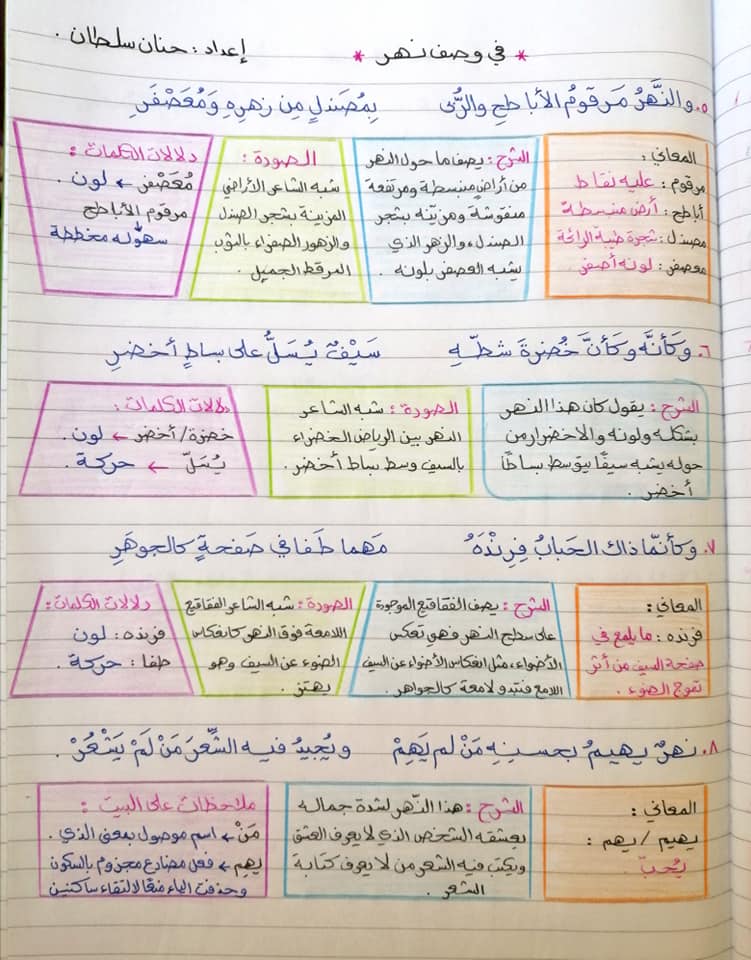 * في وصف نهر * إعداد : حنان سلطان .
٥. والنَّهَرُ مَرقومُ الأباطحِ والرُّبى بِمُصَندلٍ مِن زهرِهِ وَمُعَصْفَرِ
المعاني :
مرقوم : عليه نقاط
أباطح : أرض منبسطة
مصندل : شجرة طيبة الرائحة
معصفر : لونه أصفر
الشرح : يصف ما حول النهر
من أراضٍ منبسطة ومرتفعة
منقوشة ومزينة بشجر
الصندل ، والزهر الذي
يشبه العصفر بلونه .
الصورة :
شبه الشاعر الأراضي
المزينة بشجر الصندل
والزهور الصفراء بالثوب
المرقط الجميل .
دلالات الكلمات :
مُعَصْفر ← لون .
مرقوم الأباطح
سهوله مخططة
٦. وَكَأنَّه وكَأنَّ خُضرةَ شطّهِ سَيْفٌ يُسَلُّ على بساطٍ أخضرِ
الشرح : يقول كان هذا النهر
بشكله ولونه والاخضرار من
حوله يشبه سيفًا يتوسط بساطًا
أخضر .
الصورة : شبه الشاعر
النهر بين الرياض الخضراء
بالسيف وسط بساط أخضر .
دلالات الكلمات :
خضرة / أخضر ← لون .
يُسَلّ ← حركة .
٧. وكأنمّا ذاك الحَبابُ فِرِنْدَهُ مَهما طَفا في صَفحةٍ كالجوهَرِ
المعاني :
فرنده : ما يلمع في
صفحة السيف من أثر
تموج الضوء .
الشرح : يصف الفقاقيع الموجودة
على سطح النهر فهي تعكس
الأضواء ، مثل انعكاس الأضواء عن السيف
اللامع فتبدو لامعة كالجواهر .
الصورة : شبه الشاعر الفقاقيع
اللامعة فوق النهر كانعكاس
الضوء عن السيف وهو
يهتز .
دلالات الكلمات :
فرنده : لون
طفا : حركة .
٨. نهرٌ يهيمُ بحسنِهِ مَنْ لم يَهِمْ ويُجيدُ فيه الشِّعرَ مَنْ لَمْ يَشْعُرْ .
المعاني :
يهيم / يهم :
يُحبّ .
الشرح : هذا النّهر لشدة جماله
يعشقه الشخص الذي لا يعرف العشق
ويكتب فيه الشعر من لا يعرف كتابة
الشعر .
ملاحظات على البيت :
مَنْ ← اسم موصول بمعنى الذي .
يهم ← فعل مضارع مجزوم بالسكون
وحذفت الياء منعًا لالتقاء ساكنين